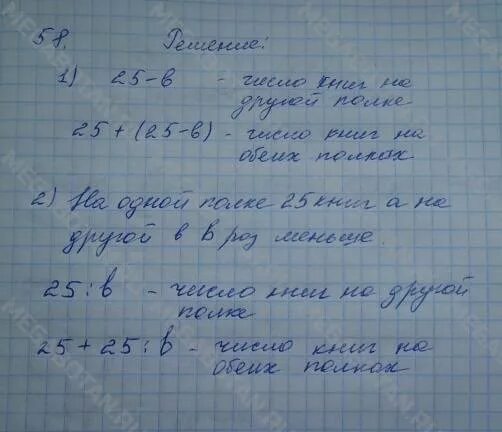 58. Решение:
1) 25-в - число книг на
другой полке
25+(25-в) - число книг на
обеих полках
2) На одной полке 25 книг а на
другой в в роз меньше
25:в - число книг на другой
полке
25+25:в - число книг на
обеих полках